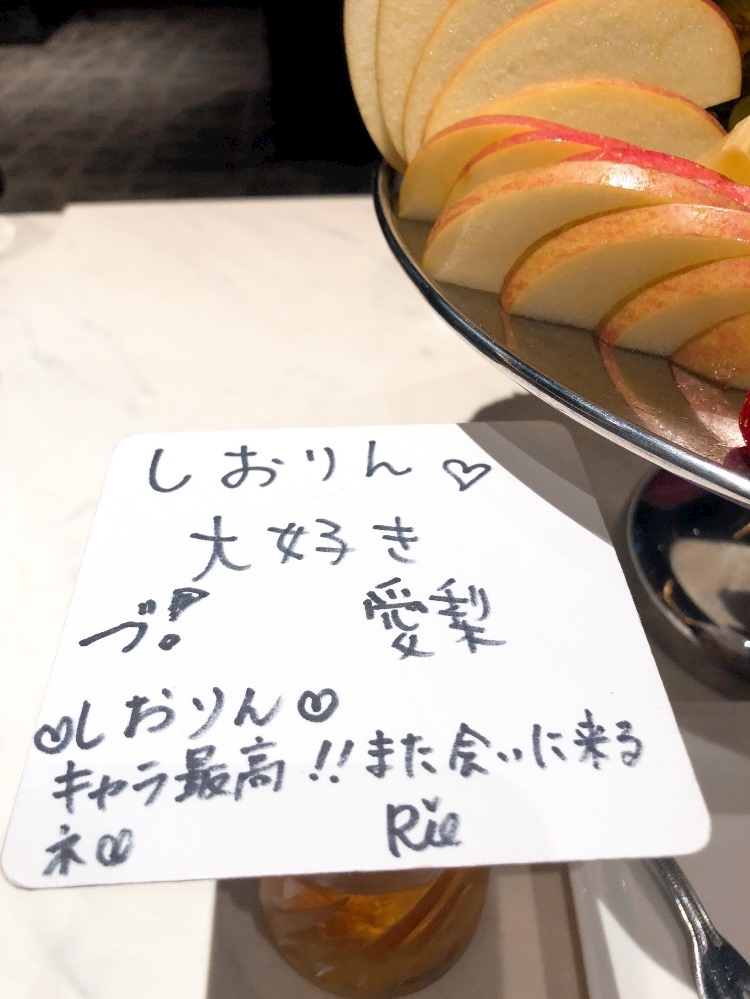 しおりん♡
大好き
づ! 愛梨
♡しおりん♡
キャラ最高!!また会いに来る
ネ♡ Rie